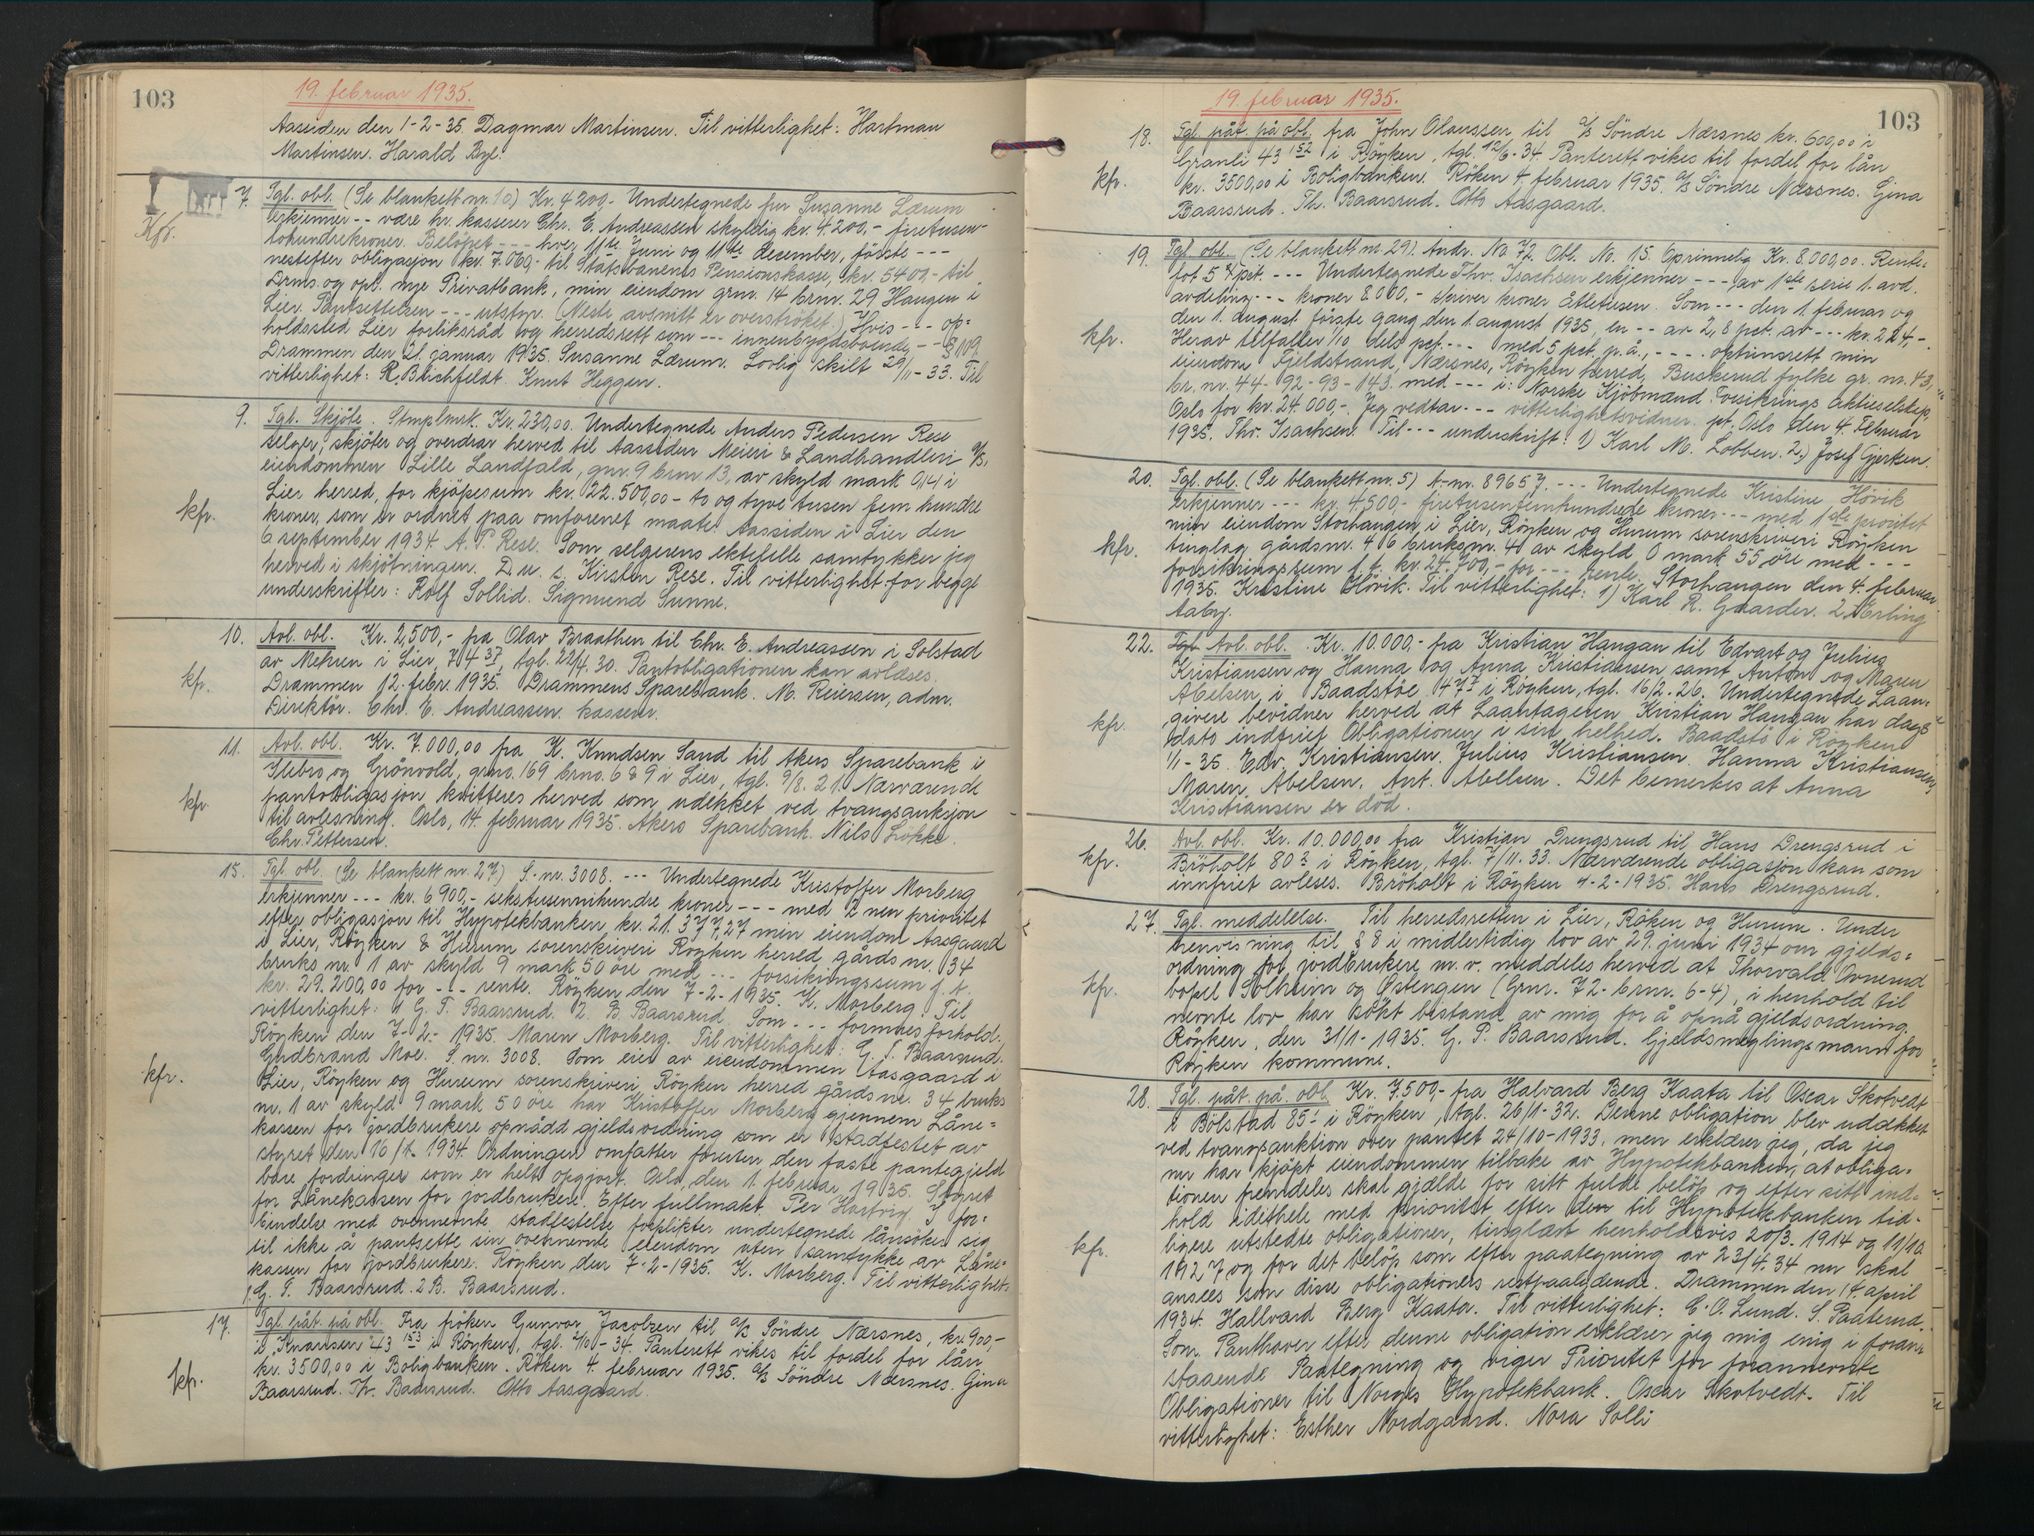 103
19. februar 1935.
Aassiden den 1-2-35. Dagmar Martinsen. Til vitterlighet: Hartman
Martinsen. Harald Bye.
7. Tgl. obl. (Se blankett nr. 10) Kr. 4200,- Undertegnede fru Susanne Lærum
Kfr.
erkjenner -- være hr. kasserer Chr. E. Andreassen skyldig kr. 4.200,- firetusen-
tohundrekroner. Beløpet --- hver 11te Juni og 11te desember, første ---
nestefter obligasjon kr. 7.000,- til Statsbanenes Pensionskasse, kr. 5400,- til
Drms. og opl. nye Privatbank, min eiendom grnr. 14 brnr. 29 Haugen i
Lier. Pantsettelsen --- utstyr. (Neste avsnitt er overstrøket.) Hvis --- op-
holdssted Lier forliksråd og herredsrett som --- innenbygdsboende -- § 109.
Drammen den 21. januar 1935. Susanne Lærum. Lovlig skilt 29/11-33. Til
vitterlighet: R. Blichfeldt. Knut Heggen.
9. Tgl. Skjöte. Stmplmrk. Kr. 230,00. Undertegnede Anders Pedersen Rese
selger, skjöter og overdrar herved til Aassiden Meieri & Landhandleri A/S,
eiendommen Lille Landfald, gnr. 9 brnr 13, av skyld mark 0,14 i
kfr.
Lier herred, for kjöpesum kr. 22.500,00 - to og tyve tusen fem hundre
kroner, som er ordnet paa omforenet maate. Aassiden i Lier den
6 september 1934. A. P. Rese. Som selgerens ektefelle samtykker jeg
herved i skjötningen. D. u. s. Kirsten Rese. Til vitterlighet for begge
underskrifter: Rolf Sollid. Sigmund Sunne.
10. Avl. obl. Kr. 2,500,- fra Olav Braathen til Chr. E. Andreassen i Solstad
av Mehren i Lier, 74 37, tgl. 22/4.30. Pantobligationen kan avlæses.
kfr.
Drammen 12. febr. 1935. Drammens Sparebank. M. Reiersen, adm.
Direktör. Chr. E. Andreassen. kasserer.
11. Avl. obl. Kr. 7.000,00 fra K. Knudsen Sand til Akers Sparebank i
Ilebro og Grönvold, grno. 169 brno. 6 & 9 i Lier, tgl. 9/8.21. Nærværende
kfr.
pantobligasjon kvitteres herved som udekket ved tvangsauksjon
til avlesning. Oslo, 14 februar 1935. Akers Sparebank. Nils Lökke.
Chr. Pettersen.
15. Tgl obl. (Se blankett nr. 27) S.-nr. 3008. --- Undertegnede Kristoffer Morberg
erkjenner --- kr. 6900,- sekstusennihundre kroner --- med 2 nen prioritet
efter obligasjon til Hypotekbanken, kr. 21.377,27 min eiendom Aasgaard
i Lier, Röyken & Hurum sorenskriveri Röyken herred gårds nr. 34
bruks nr. 1 av skyld 9 mark 50 öre med --- forsikringssum f. t.
kr. 29.200,00 for --- rente. Röyken den 7-2-1935. K. Morberg. Til
vitterlighet: 1 G. T. Baarsrud. 2. B. Baarsrud. Som --- formues forhold.
Röyken den 7-2-1935. Maren Morberg. Til vitterlighet: G. T. Baarsrud.
Gudbrand Moe. S. nr. 3008. Som eier av eiendommen Aasgaard i
kfr.
Lier, Röyken og Hurum sorenskriveri, Röyken herred gårds nr. 34 bruks
nr. 1 av skyld 9 mark 50 öre har Kristoffer Morberg gjennem Låne-
kassen for jordbrukere opnådd gjeldsordning som er stadfestet av
styret den 16/1- 1934. Ordningen omfatter foruten den faste pantegjeld
bare fordringer som er helt opgjort. Oslo, den 1 februar 1935. Styret
for Lånekassen for jordbrukere. Efter fullmakt. Per Hartvig. I for-
bindelse med ovennevnte stadfestelse forplikter undertegnede lånsöker sig
til ikke å pantsette sin ovennevnte eiendom uten samtykke av Låne-
kassen for jordbrukere. Röyken den 7-2-1935. K. Morberg. Til vitterlighet:
1. G. T. Baarsrud. 2 B. Baarsrud.
17. Tgl. påt. på obl. Fra fröken Gunvor Jacobsen til A/S Söndre Nærsnes, kr. 900,-
i Kvamsen 43 153 i Röyken, tgl. 2/10-34. Panterett vikes til fordel for lån
kfr.
kr. 3500,00 i Boligbanken. Röken 4. februar 1935. A/S Söndre Nærsnes. Gina
Baarsrud. Th. Baarsrud. Otto Aasgaard.
19. februar 1935.
103
18. Tgl. påt. på obl. fra John Olaussen til A/S Söndre Nærsnes kr. 600,00 i
Granli 43 152 i Röyken, tgl. 12/6-34. Panterett vikes til fordel for lån
kfr.
kr. 3500,00 i Boligbanken. Röken 4 februar 1935. A/S Söndre Næssnes. Gina
Baarsrud. Th. Baarsrud. Otto Aasgaard.
19. Tgl. obl. (Se blankett nr. 29). Andr. No. 72. Obl. No. 15. Oprinnelig Kr. 8.000,00. Rente-
fot 5 pct. --- Undertegnede Thv. Isachsen erkjenner --- av 1ste serie 1. avd.
avdeling --- kroner 8.000,- skriver kroner åttetusen. Som --- den 1. februar og
den 1. august förste gang den 1. august 1935, en -- av 2,8 pct. av --- kr. 224,-.
kfr.
Herav tilfaller 1/10 dels pct. --- med 5 pct. p. å., ---- optionsrett min
eiendom Fjeldstrand, Nærsnes, Röyken herred, Buskerud fylke gr. nr. 43,
br. nr. 44-92-93-143 med --- i: Norske Kjöbmænd forsikrings aktieselskap,
Oslo for kr. 24.000,-. Jeg vedtar --- vitterlighetsvidner. pt. Oslo den 4. Februar
1935. Thv. Isachsen. Til --- underskrift: 1) Karl M. Lobben. 2.) Josef Gjerken.
20. Tgl. obl. (Se blankett nr. 5) A.-nr. 89657. --- Undertegnede Kristine Hövik
erkjenner --- kr. 4.500,- firetusenfemhundrede kroner --- med 1ste prioritet
min eiendom Storhaugen i Lier, Röyken og Hurum sorenskriveri Röyken
kfr.
tinglag gårdsnr. 46 bruksnr. 41 av skyld 0 mark 55 öre med ---
forsikringssum f. t. kr. 24.700,- for --- rente. Storhaugen den 4. februar
1935. Kristine Hövik. Til vitterlighet: 1) Karl R. Gaarder. 2.) Erling
Aaby.
22. Tgl. Avl. obl. Kr. 10.000,- fra Kristian Haugan til Edvart og Julius
Kristiansen og Hanna og Anna Kristiansen, samt Anton og Maren
Abelsen, i Baadstöe 47 7 i Röyken, tgl. 16/2.26. Undertegnede Laan-
kfr.
givere bevidner herved at Laantageren Kristian Haugan har dags
dato indfriet Obligationen i sin helhed. Baadstö i Röyken
1/1-35. Edv. Kristiansen. Julius Kristiansen. Hanna Kristiansen.
Maren Abelsen. Ant. Abelsen. Det bemerkes at Anna
Kristiansen er död.
26. Avl. obl. Kr. 10.000,00 fra Kristian Drengsrud til Hans Drengsrud i
kfr.
Bröholt 80 2 i Röyken, tgl. 7/11.33. Nærværende obligasjon kan som
innfriet avleses. Bröholt i Röyken 4-2-1935. Hans Drengsrud.
27. Tgl. meddelelse. Til herredsretten i Lier, Röken og Hurum. Under
henvisning til § 8 i midlertidig lov av 29. juni 1934 om gjelds-
ordning for jordbrukere m. v. meddeles herved at Thorvald Ovnerud
kfr.
bopel Solheim og Østengen (Grnr. 72- brnr. 6-4), i henhold til
nevnte lov har sökt bistand av mig for å opnå gjeldsordning.
Röyken, den 31/1-1935. G. P. Baarsrud. Gjeldsmeglingsmann for
Röyken kommune.
28. Tgl. påt. på. obl. Kr. 7.500,- fra Halvard Berg Kaata til Oscar Skotvedt
i Bölstad 85 1 i Röyken, tgl. 26/1-32. Denne obligation blev udækket
ved tvangsauktion over pantet 24/10-1933, men erklærer jeg, da jeg
nu har kjöpt eiendommen tilbake av Hypotekbanken, at obliga-
tionen fremdeles skal gjælde for sitt fulde belöp og efter sitt ind-
hold idethele med prioritet efter den til Hypotekbanken tid-
ligere utstedte obligationer, tinglæst henholdsvis 20/3. 1914 og 11/10
kfr.
1927 og for det belöp som efter paategning av 23/4.34 nu skal
ansees som disse obligationers restpaalydende. Drammen den 14. april
1934. Hallvard Berg Kaata. Til vitterlighet: C. O. Lund. S. Paaterud.
Som Panthaver efter denne obligation erklærer jeg mig enig i foran-
staaende Paategning og viger Prioritet for forannevnte
Obligationer til Norges Hypotekbank. Oscar Skotvedt. Til
vitterlighet: Esther Nordgaard. Nora Solli